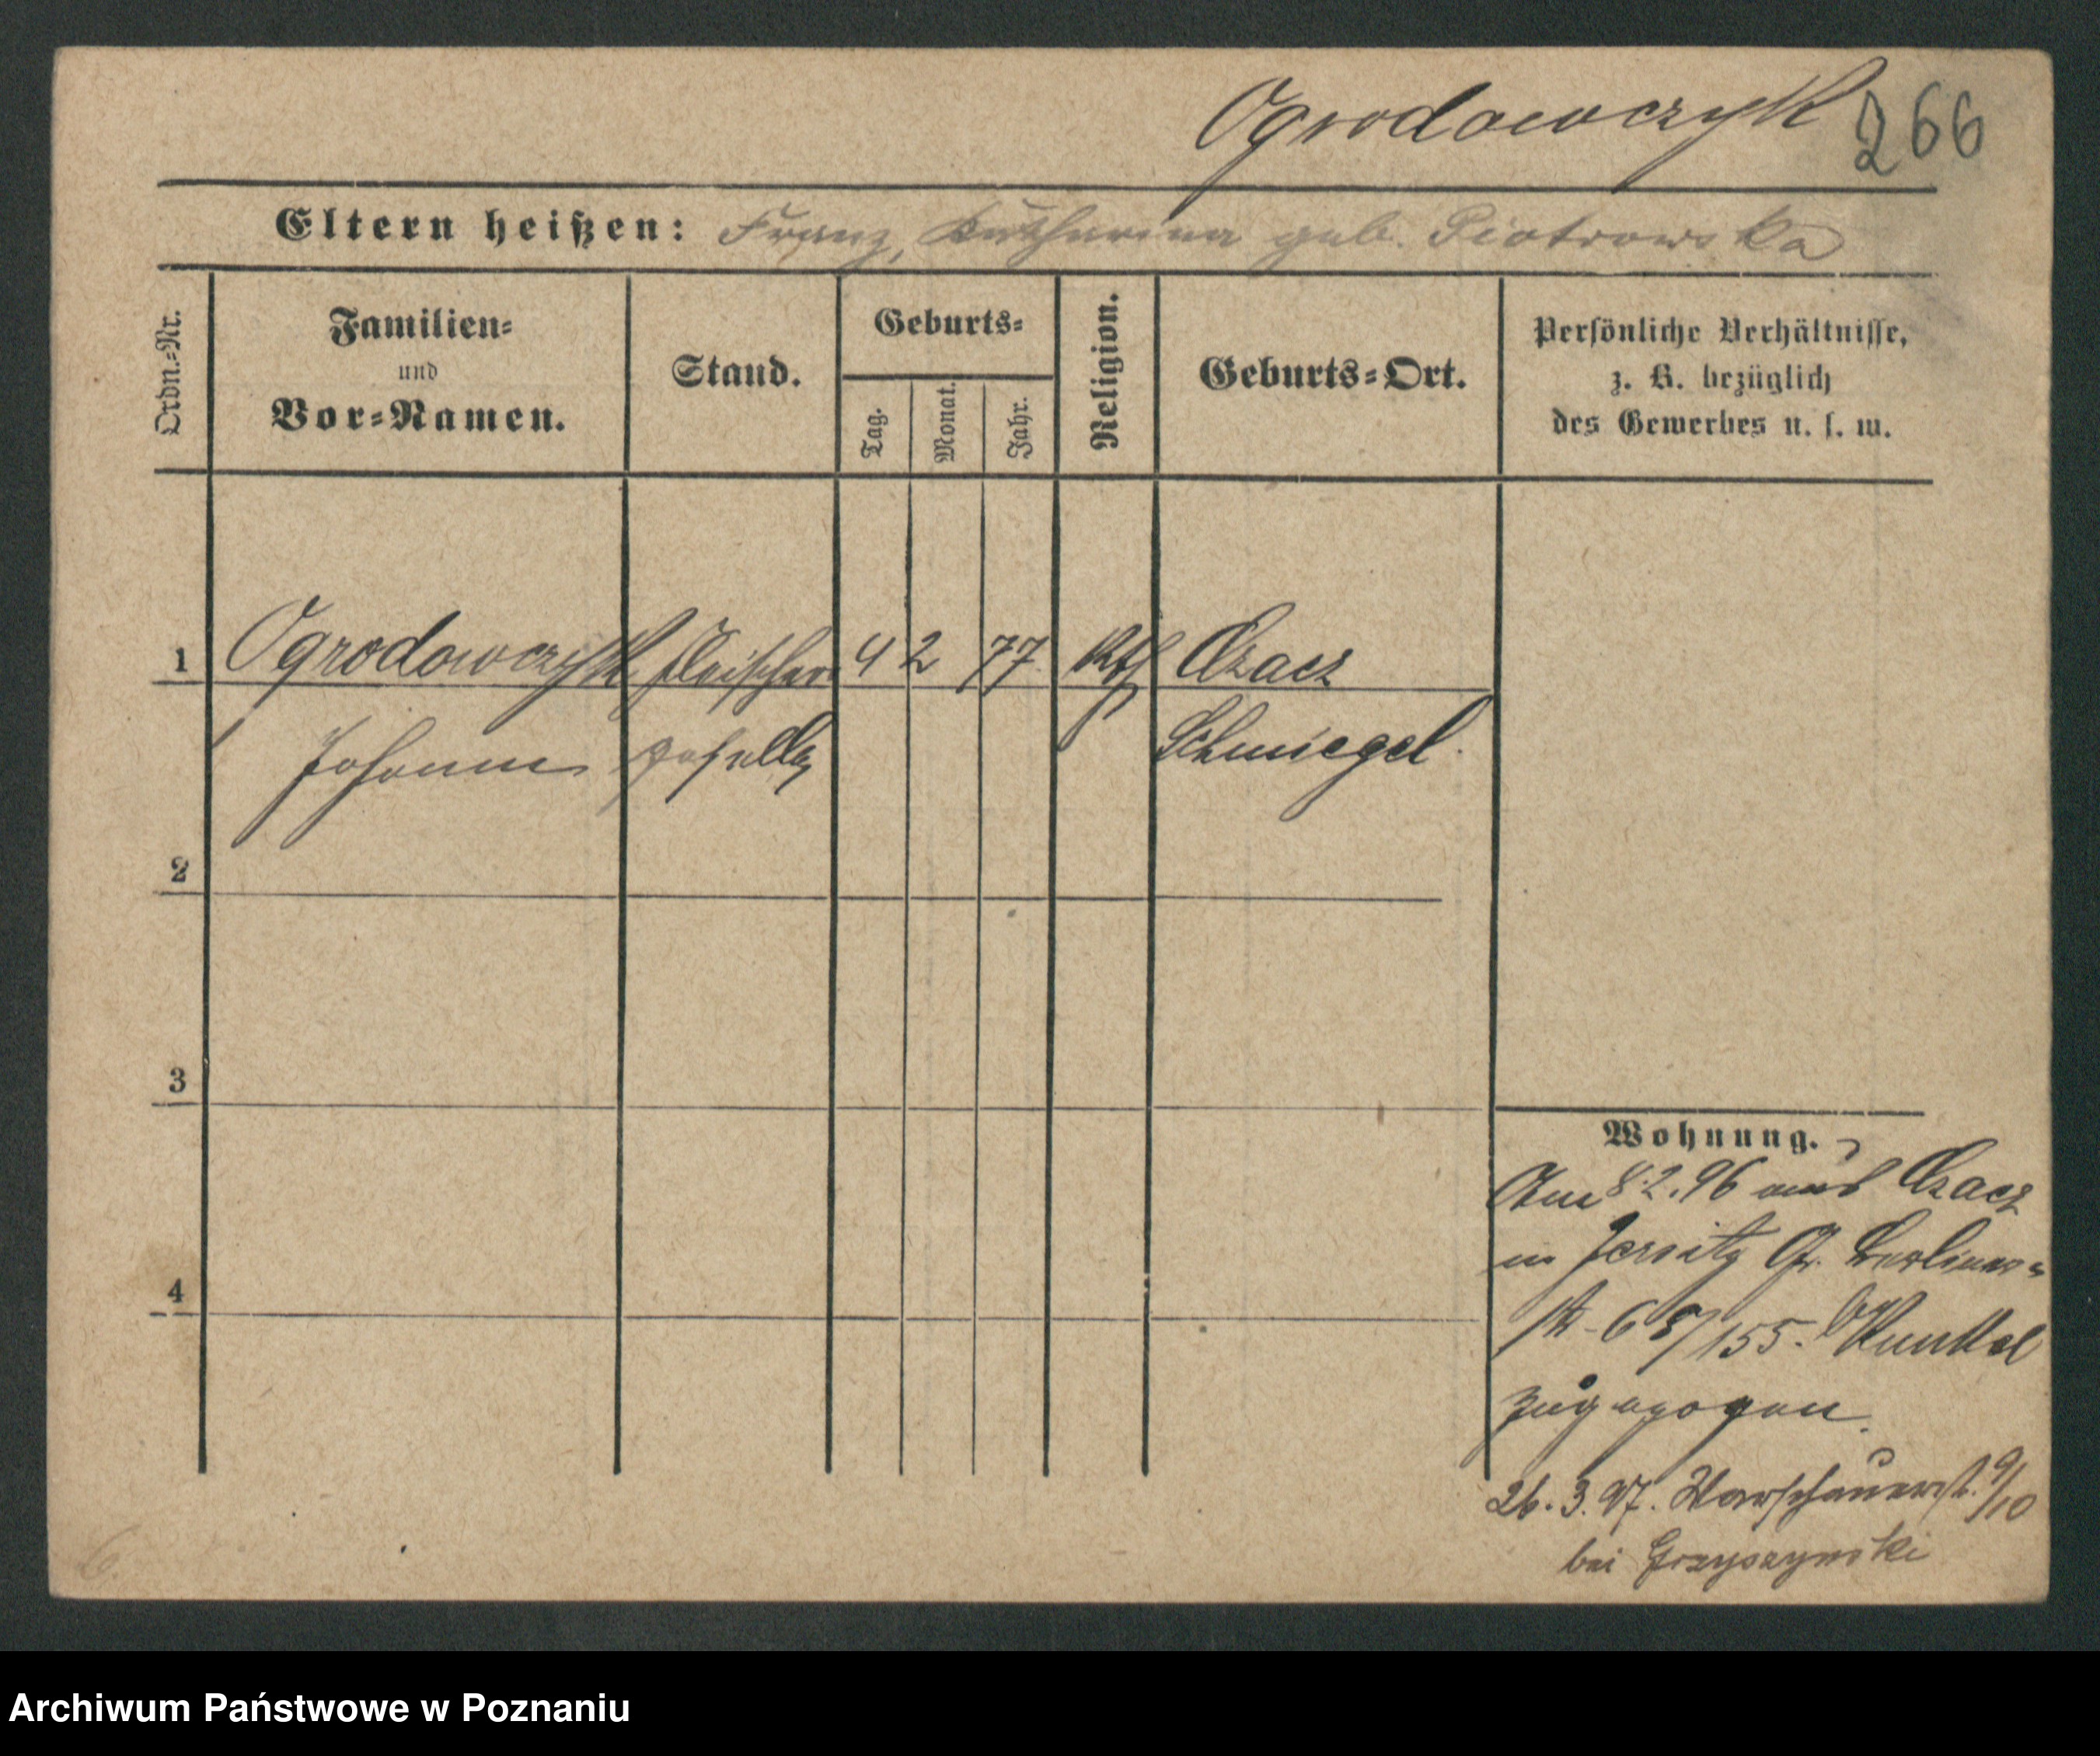 Ogrodowczyk 266
Eltern heißen: Franz, Katharina geb. Piotrowska
Ordn.=Nr.
Familien=
und
Vor=Namen.
Stand.
Geburts=
Tag.
Monat.
Jahr.
Religion.
Geburts=Ort.
Persönliche Verhältnisse,
z. B. bezüglich
des Gewerbes u. s. w.
1 Ogrodowczyk Fleischer 4 2 77 kth Czacz
Johann geselle Schmiegel.
2
3
4
Wohnung.
Am 8.2.96 aus Czacz
in Jersitz Gr. Berliner=
str. 68/155. Kunkel
zugezogen.
26.3.97. Warschauerst. 9/10
bei Grzyszynski
6.
Archiwum Państwowe w Poznaniu